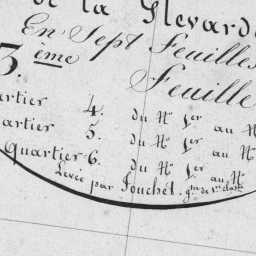 de la Glevard
En Sept Feuilles
3.ème Feuille
artier 4. du N° 1er au N°
artier 5. du N° 1er au N°
Quartier 6. du N° 1er au N°
Levée par Fouchet. gme de 1re classe